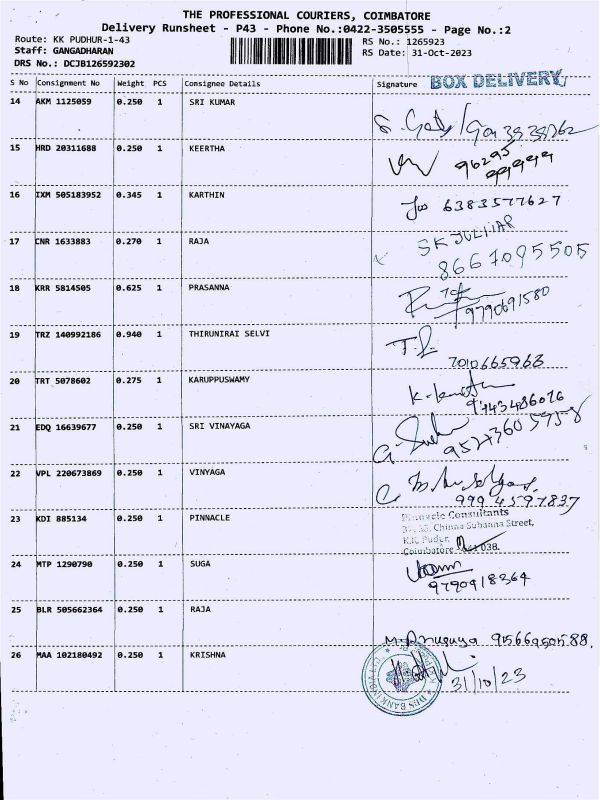 THE PROFESSIONAL COURIERS, COIMBATORE
Delivery Runsheet - P43 - Phone No.:0422-3505555 - Page No.:2
Route: KK PUDHUR-1-43 RS No.: 1265923
Staff: GANGADHARAN RS Date: 31-Oct-2023
DRS No.: DCJB126592302
S No Consignment No Weight PCS Consignee Details Signature BOX DELIVERY
14 AKM 1125059 0.250 1 SRI KUMAR
15 HRD 20311688 0.250 1 KEERTHA 96295
99999
16 IXM 505183952 0.345 1 KARTHIN 6383577627
17 CNR 1633883 0.270 1 RAJA SK
8667095505
18 KRR 5814505 0.625 1 PRASANNA
9790691580
19 TRZ 140992186 0.940 1 THIRUNIRAI SELVI
7010665968
20 TRT 5078602 0.275 1 KARUPPUSWAMY
9443486076
21 EDQ 16639677 0.250 1 SRI VINAYAGA
22 VPL 220673869 0.250 1 VINYAGA
23 KDI 885134 0.250 1 PINNACLE Pinnacle Consultants
Chinna Subanna Street,
K.K. Pudur,
Coimbatore 038.
24 MTP 1290790 0.250 1 SUGA
9790918364
25 BLR 505662364 0.250 1 RAJA
M. Anusuya 9566950588.
26 MAA 102180492 0.250 1 KRISHNA
31/10/23
DBS BANK INDIA LTD